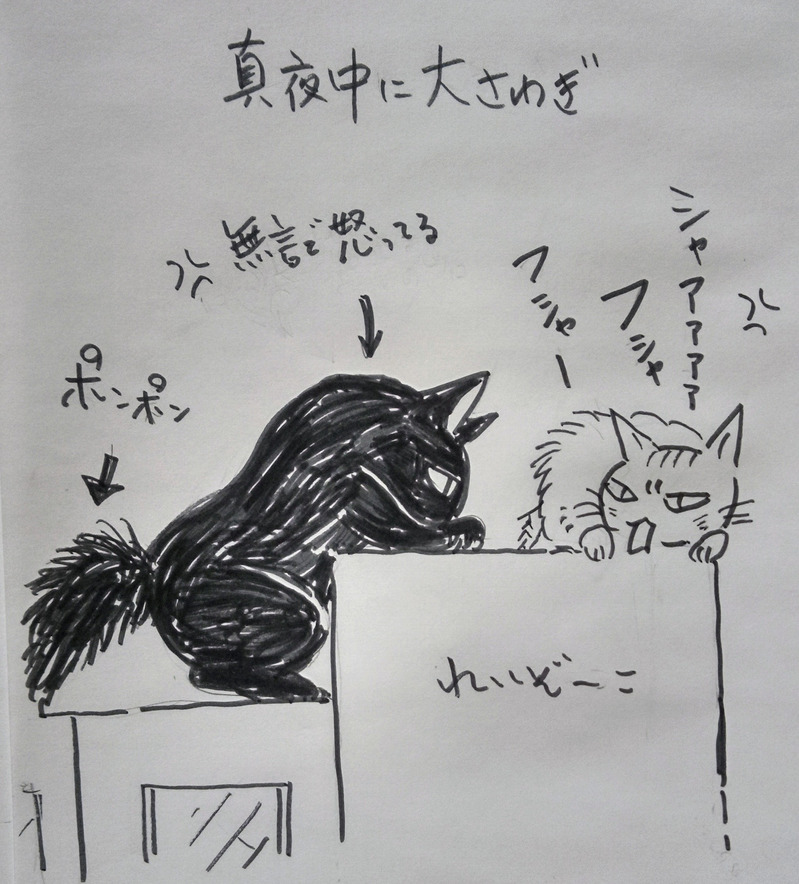 真夜中に大さわぎ
無言で怒ってる
シャアアアアア
フシャ
フシャー
ポンポン
れいぞーこ